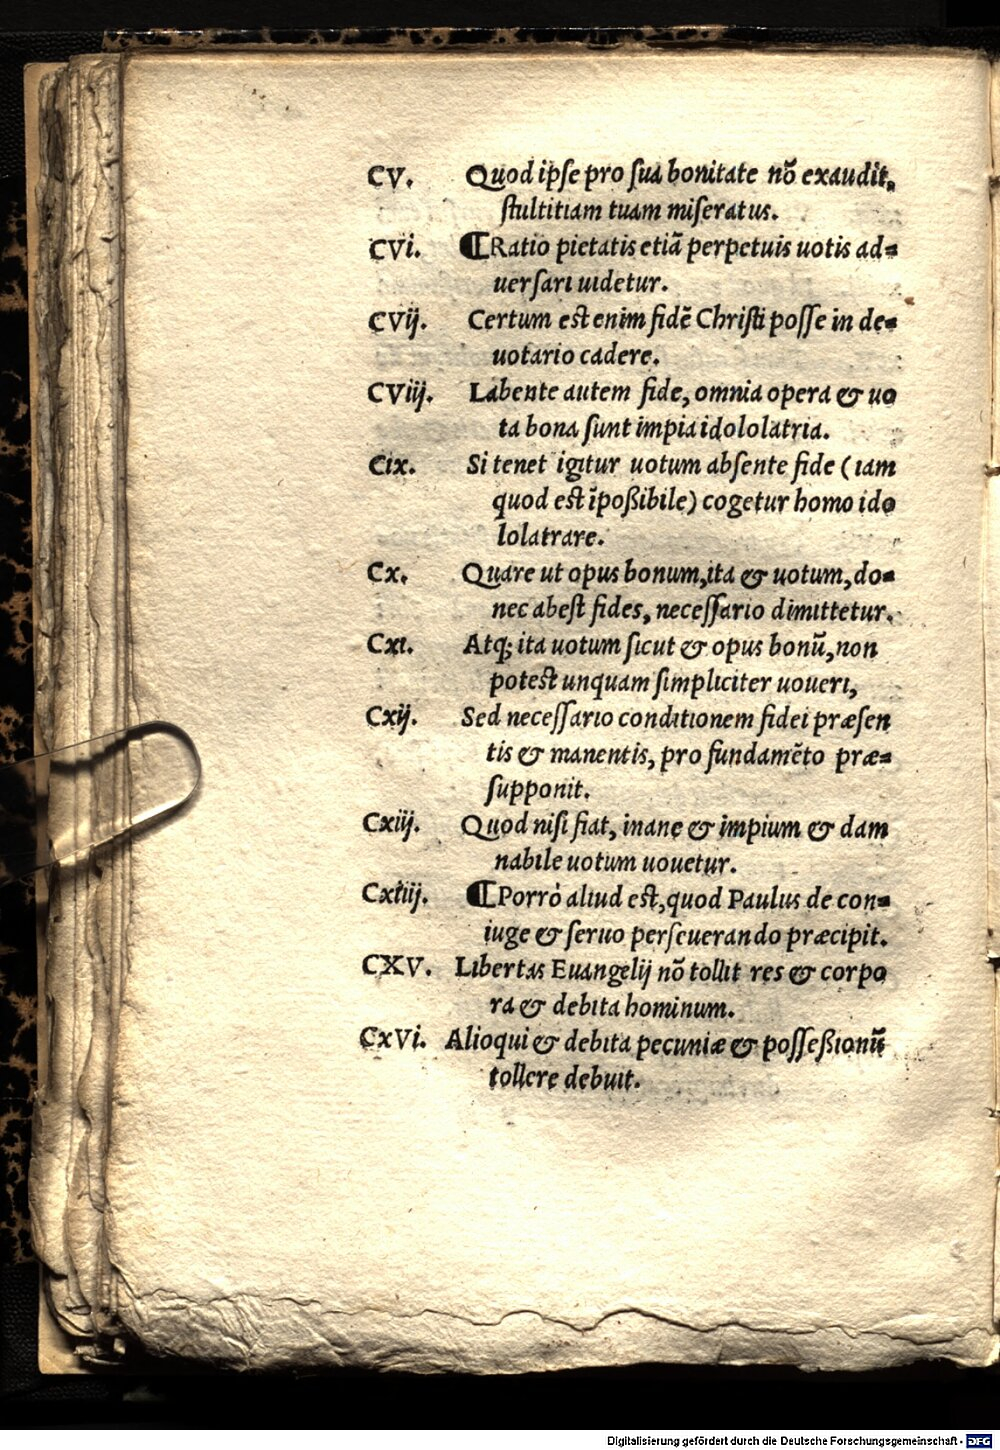 CV. Quod ipſe pro ſua bonitate nõ exaudit,
ſtultitiam tuam miſeratus.
CVi. ¶Ratio pietatis etiã perpetuis uotis ad⸗
uerſari uidetur.
CVij. Certum eſt enim fidẽ Chriſti poſſe in de⸗
uotario cadere.
CViij. Labente autem fide, omnia opera & uo
ta bona ſunt impia idololatria.
Cix. Si tenet igitur uotum abſente fide (iam
quod eſt ĩpoßibile) cogetur homo ido
lolatrare.
Cx. Quare ut opus bonum, ita & uotum, do⸗
nec abeſt fides, neceſſario dimittetur.
Cxi. Atq; ita uotum ſicut & opus bonũ, non
poteſt unquam ſimpliciter uoueri,
Cxij. Sed neceſſario conditionem fidei præſen
tis & manentis, pro fundamẽto præ⸗
ſupponit.
Cxiij. Quod niſi fiat, inane & impium & dam
nabile uotum uouetur.
Cxiiij. ¶Porrò aliud eſt, quod Paulus de con⸗
iuge & ſeruo perſeuerando præcipit.
CXV. Libertas Euangelij nõ tollit res & corpo
ra & debita hominum.
CxVi. Alioqui & debita pecuniæ & poſſeßionũ
tollere debuit.
Digitalisierung gefördert durch die Deutsche Forschungsgemeinschaft - DFG